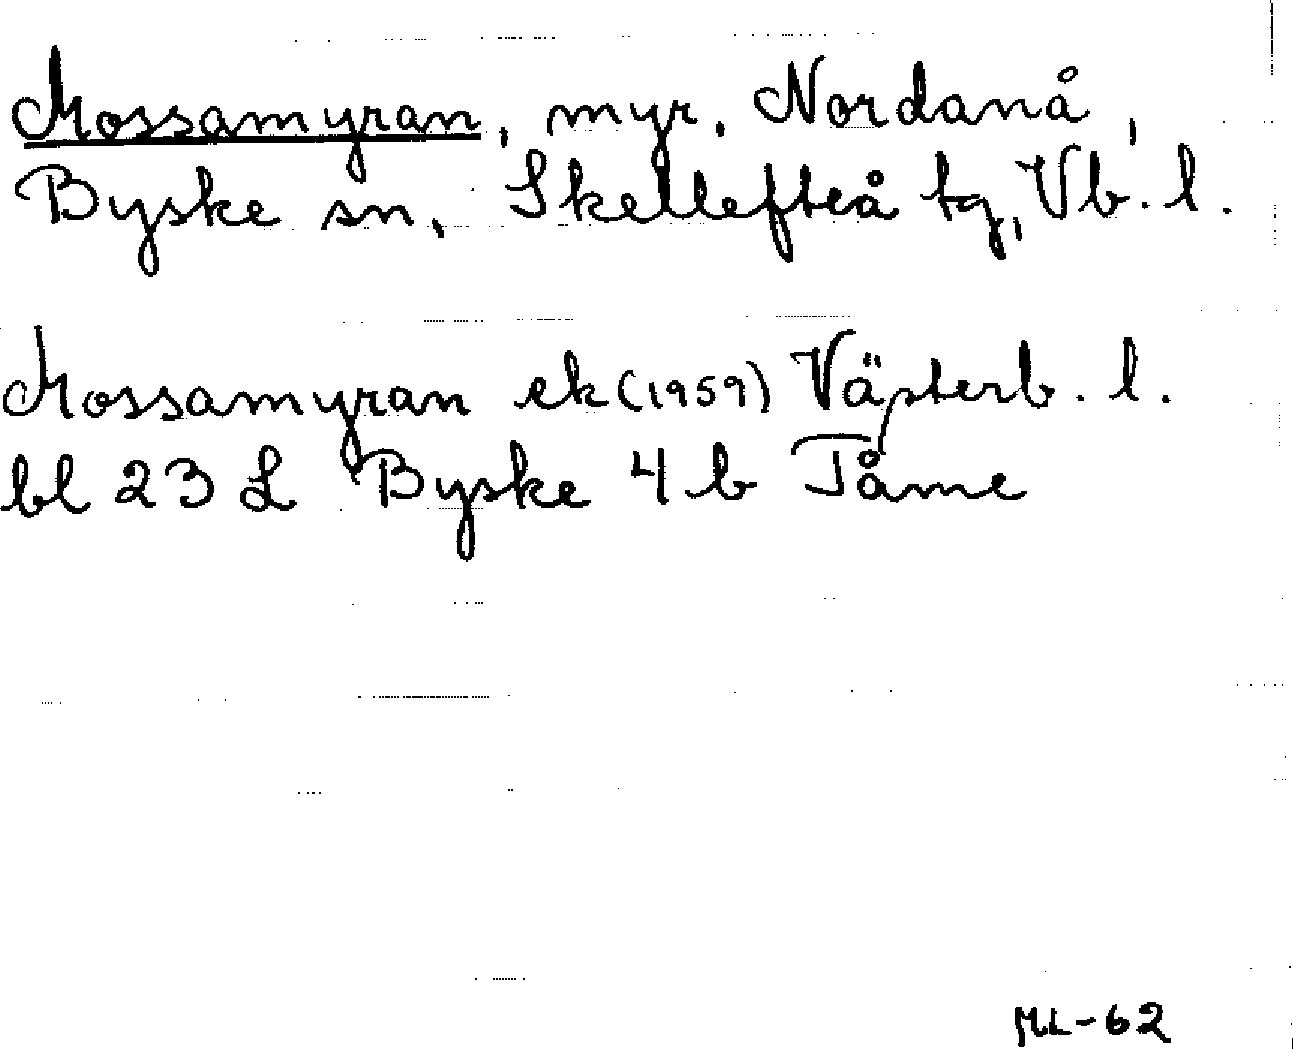 Mossamyran, myr, Nordanå,
Byske sn, Skellefteå tg, Vb. l.
Mossamyran ek (1959) Västerb. l.
bl 23 L Byske 4 b Tåme
ML-62